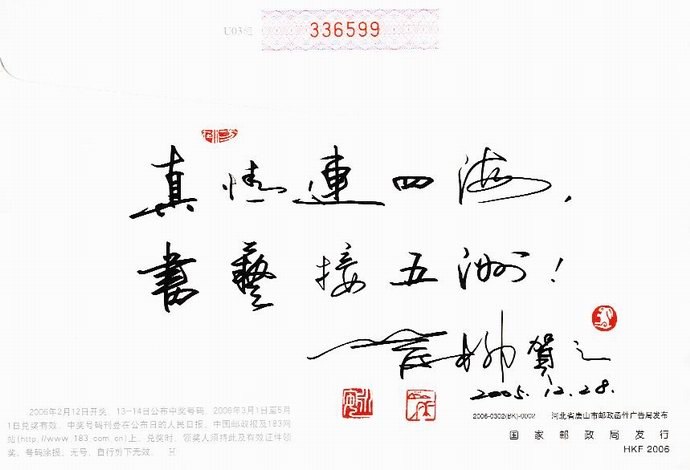 U03组 336599
真情連四海,
書藝接五洲!
賀之
2005.12.28.
2006年2月12日开奖 13-14日公布中奖号码 2006年3月1日至5月
1日兑奖有效。中奖号码刊登在公布日的人民日报、中国邮政报及183网
站(http://www.183.com.cn)上。兑奖时,领奖人须持此及有效证件领
奖。号码涂损、无号、自行剪下无效。
2006-0302(BK)-0002 河北省唐山市邮政函件广告局发布
国家邮政局发行
HKF 2006